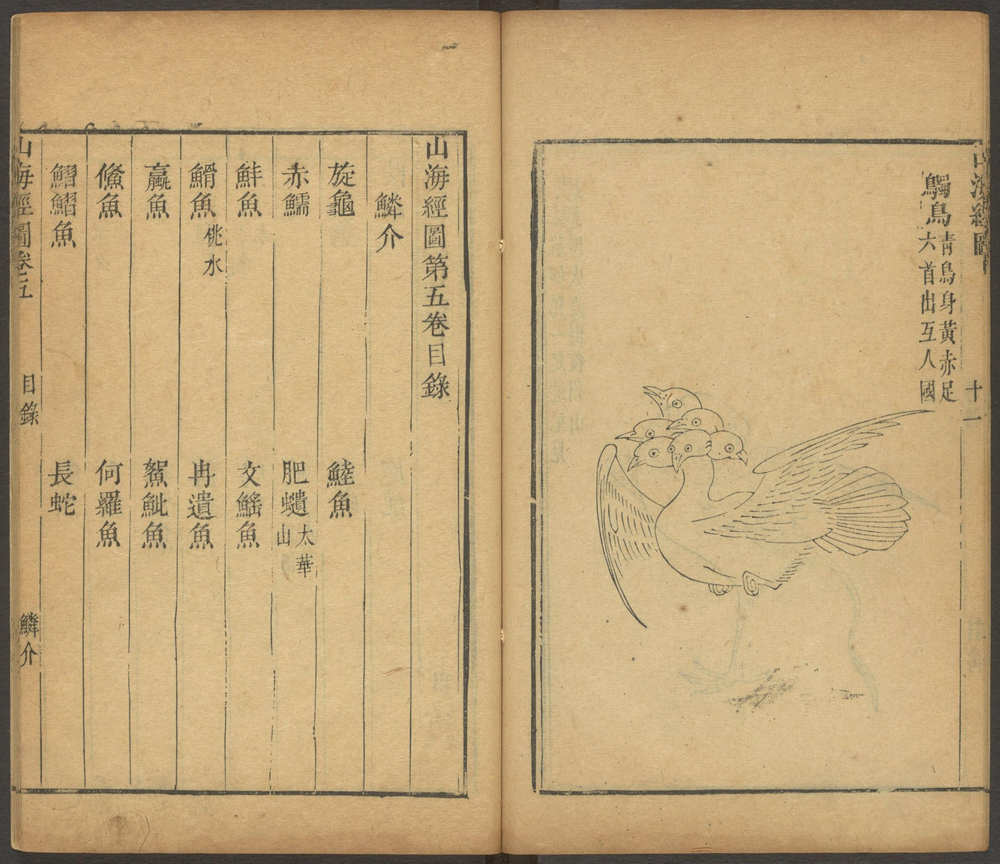 山海經圖
十一
鸀鳥 青鳥身黃赤足
六首出互人國
山海經圖第五卷目錄
鱗介
旋龜 鯥魚
赤鱬 肥䗤 太華
山
鮮魚 文鰩魚
䱻魚 佻水 冉遺魚
蠃魚 鴽魮魚
鯈魚 何羅魚
鰼鰼魚 長蛇
山海經圖卷五 目錄 鱗介